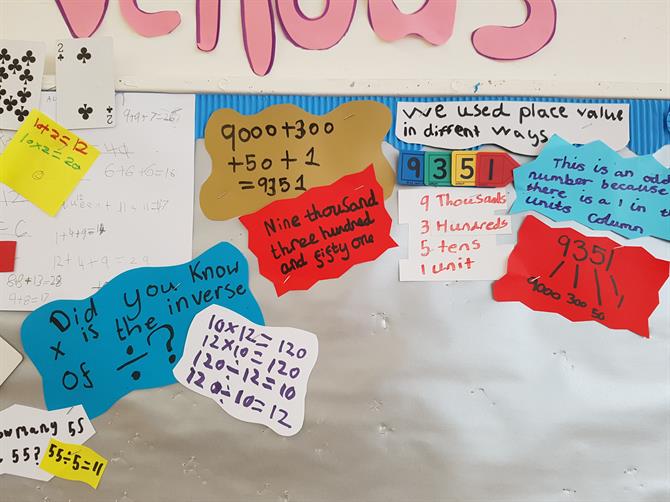 2
10+2=12
10x2=20
9+9+7=26
6+6+6=18
1+4+9=14
12+4+9=29
8+13=28
9+8=17
9000+300
+50+1
=9351
Nine thousand
three hundred
and fifty one
we used place value
in diffrent ways
9 3 5 1
9 Thousands
3 Hundreds
5 tens
1 unit
This is an odd
number because
there is a 1 in
units column
9351
9000 300 50
Did you know
x is the inverse
of ÷?
10x12=120
12x10=120
120÷12=10
120÷10=12
many 55
55?
55÷5=11
2